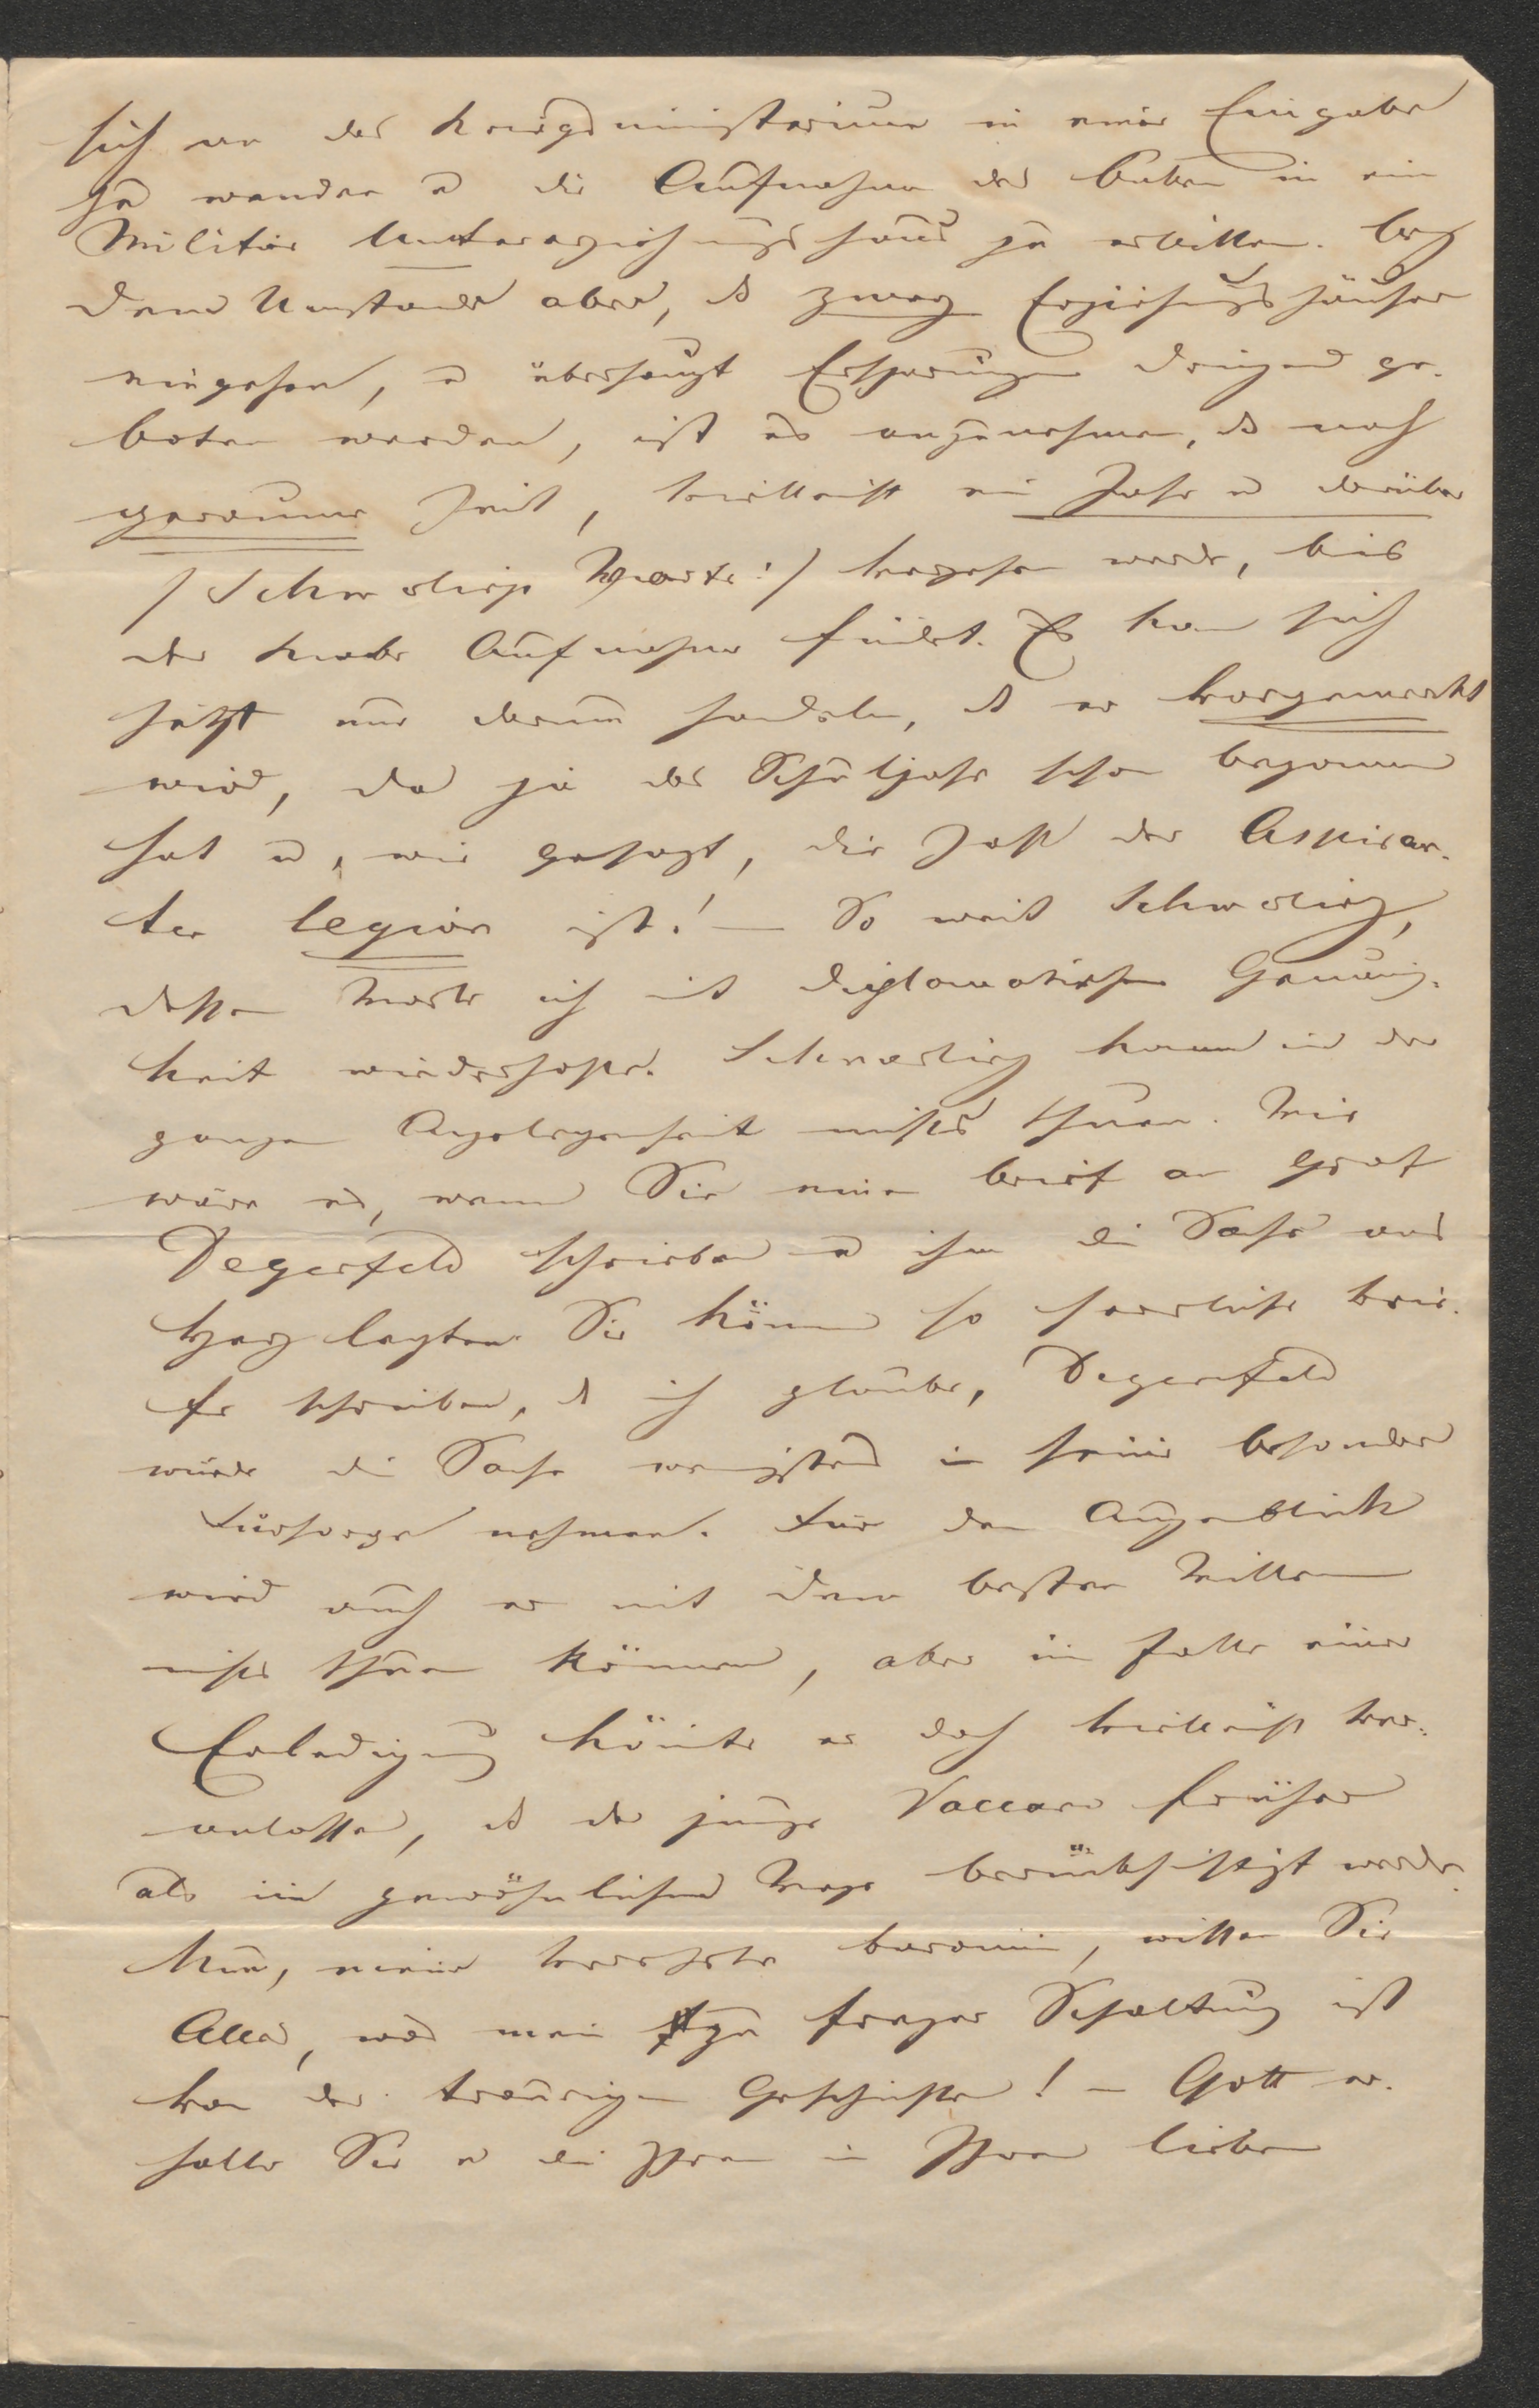 sich an das Kriegsministerium in einer Eingabe
zu wenden u die Aufnahme des Buben in ein
Militär Untererziehungshaus zu erbitten. Bey
dem Umstande aber, dß zwey Erziehungshäuser
eingehen, u überhaupt Ersparungen dringend ge-
boten werden, ist es anzunehmen, dß noch
geraume Zeit, vielleicht ein Jahr u darüber
/ Schmerling Worte! / vergehen werde, bis
der Knabe Aufnahme findet. Es kan sich
jetzt nur darum handeln, dß er vorgemerkt
wird, da ja das Schuljahr schon begonnen
hat u, wie gesagt, die Zahl der Aspiran-
ten legion ist! — So weit Schmerling,
dessen Worte ich mit diplomatischer Genauig-
keit wiederhohle. Schmerling kann in der
ganzen Angelegenheit nichts thuen. Wie
wäre es, wenn Sie einen Brief an Graf
Degenfeld schrieben u ihm die Sache ans
Herz legten. Sie können so herrliche Brie-
fe schreiben, dß ich glaube, Degenfeld
würde die Sache wenigstens in seine besondere
Fürsorge nehmen. Für den Augenblick
wird auch er mit dem besten Willen
nichts thun können, aber im Falle einer
Erledigung könnte er doch vielleicht ver-
anlassen, dß der junge Vaccani früher
als im gewöhnlichen Wege berücksichtigt werde.
Nun, meine verehrte Baronin, wissen Sie
Alles, was mein zu freyer Schaltung ist
von der traurigen Geschichte! — Gott er-
halte Sie u die Ihren in Ihren lieben